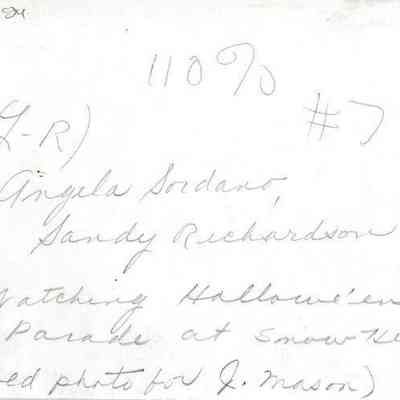 110%
#7
L-R)
Angela Sordano,
Sandy Richardson
Watching Hallowe'en
Parade at Snow
ed photo for J. Mason)